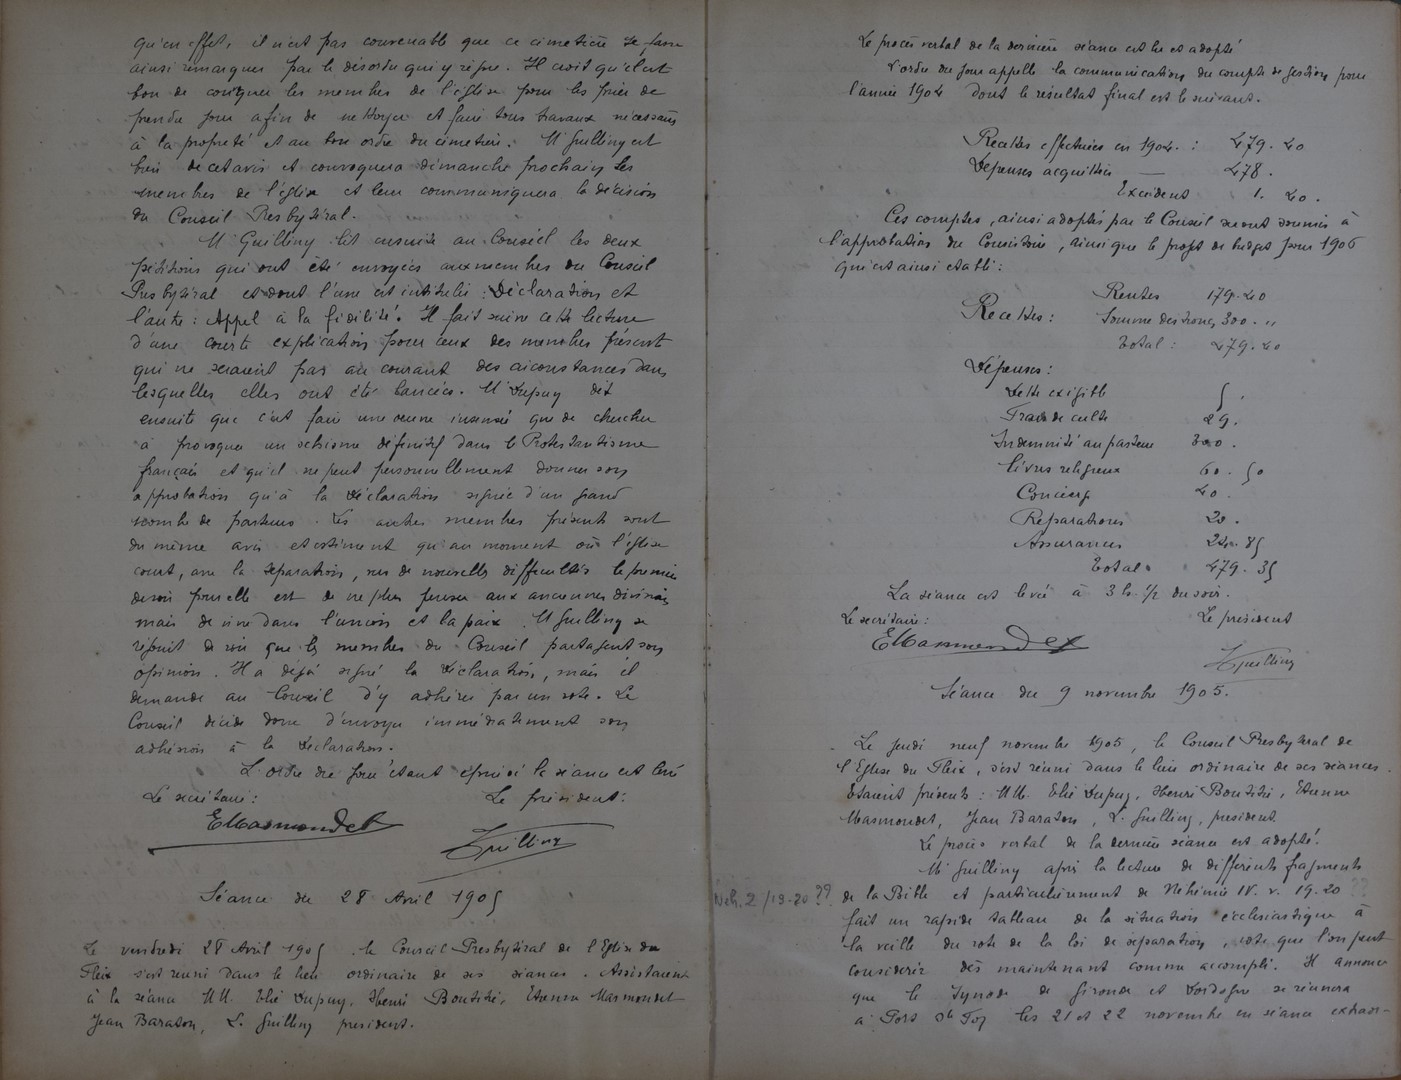 qu'en effet, il n'est pas convenable que ce cimetière se fasse
ainsi remarquer par le désordre qui y règne. Il croit qu'il est
bon de convoquer les membres de l'église pour les prier de
prendre jour afin de nettoyer et faire tous travaux nécessaires
à la propreté et au bon ordre du cimetière. Mr Guilliny est
bien de cet avis et convoquera dimanche prochain les
membres de l'église et leur communiquera la décision
du Conseil Presbytéral.
Mr Guilliny lit ensuite au Conseil les deux
pétitions qui ont été envoyées aux membres du Conseil
Presbytéral et dont l'une est intitulée : Déclaration et
l'autre : Appel à la fidélité. Il fait suivre cette lecture
d'une courte explication pour ceux des membres présents
qui ne seraient pas au courant des circonstances dans
lesquelles elles ont été lancées. Mr Dupuy dit
ensuite que c'est faire une œuvre insensée que de chercher
à provoquer un schisme définitif dans le Protestantisme
français et qu'il ne peut personnellement donner son
approbation qu'à la Déclaration signée d'un grand
nombre de pasteurs. Les autres membres présents sont
du même avis et estiment qu'au moment où l'église
court, avec la séparation, vers de nouvelles difficultés le premier
devoir pour elle est de ne plus penser aux anciennes divisions
mais de vivre dans l'union et la paix. Mr Guilliny se
réjouit de voir que les membres du Conseil partagent son
opinion. Il a déjà signé la Déclaration, mais il
demande au Conseil d'y adhérer par un vote. Le
Conseil décide donc d'envoyer immédiatement son
adhésion à la Déclaration.
L'ordre du jour étant épuisé la séance est levée
Le secrétaire : Le président :
EMasmondet Guilliny
Séance du 28 Avril 1905
Le vendredi 28 Avril 1905 le Conseil Presbytéral de l'Eglise du
Fleix s'est réuni dans le lieu ordinaire de ses séances. Assistaient
à la séance MM. Elie Dupuy, Henri Boutitié, Etienne Masmondet
Jean Baraton, L. Guilliny president.
Le procès verbal de la dernière séance est lu et adopté
L'ordre du jour appelle la communication du compte de gestion pour
l'année 1904 dont le résultat final est le suivant.
Recettes effectuées en 1904. : 479. 40
Dépenses acquittées — 478.
Excédent 1. 40.
Ces comptes, ainsi adoptés par le Conseil seront soumis à
l'approbation du Consistoire, ainsi que le projet de budget pour 1906
qui est ainsi établi :
Rentes 179.40
Recettes : Somme des troncs 300. "
Total : 479.40
Dépenses :
Dette exigible 5.
Frais de culte 29.
Indemnité au pasteur 300.
Livres religieux 60. 50
Concierge 40.
Réparations 20.
Assurances 24. 85
Total. 479. 35
La séance est levée à 3 h. 1/2 du soir.
Le secrétaire : Le président
EMasmondet Guilliny
Séance du 9 novembre 1905.
Le Jeudi neuf novembre 1905, le Conseil Presbytéral de
l'Eglise du Fleix, s'est réuni dans le lieu ordinaire de ses séances.
Etaient présents : MM. Elie Dupuy, Henri Boutitié, Etienne
Masmondet, Jean Baraton, L. Guilliny, président
Le procès verbal de la dernière séance est adopté.
Mr Guilliny après la lecture de différents fragments
Neh. 2/19-20 ?? de la Bible et particulièrement de Néhémie IV. v. 19.20 ??
fait un rapide tableau de la situation ecclésiastique à
la veille du vote de la loi de séparation, vote que l'on peut
considérer dès maintenant comme accompli. Il annonce
que le Synode de Gironde et Dordogne se réunira
à Port Ste Foy les 21 et 22 novembre en séance extraor-